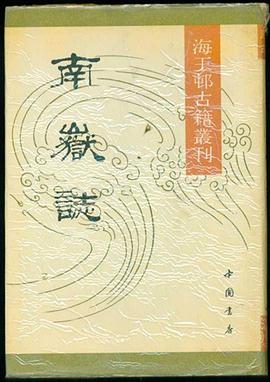 海王邨古籍叢刊
南嶽誌
中国书店